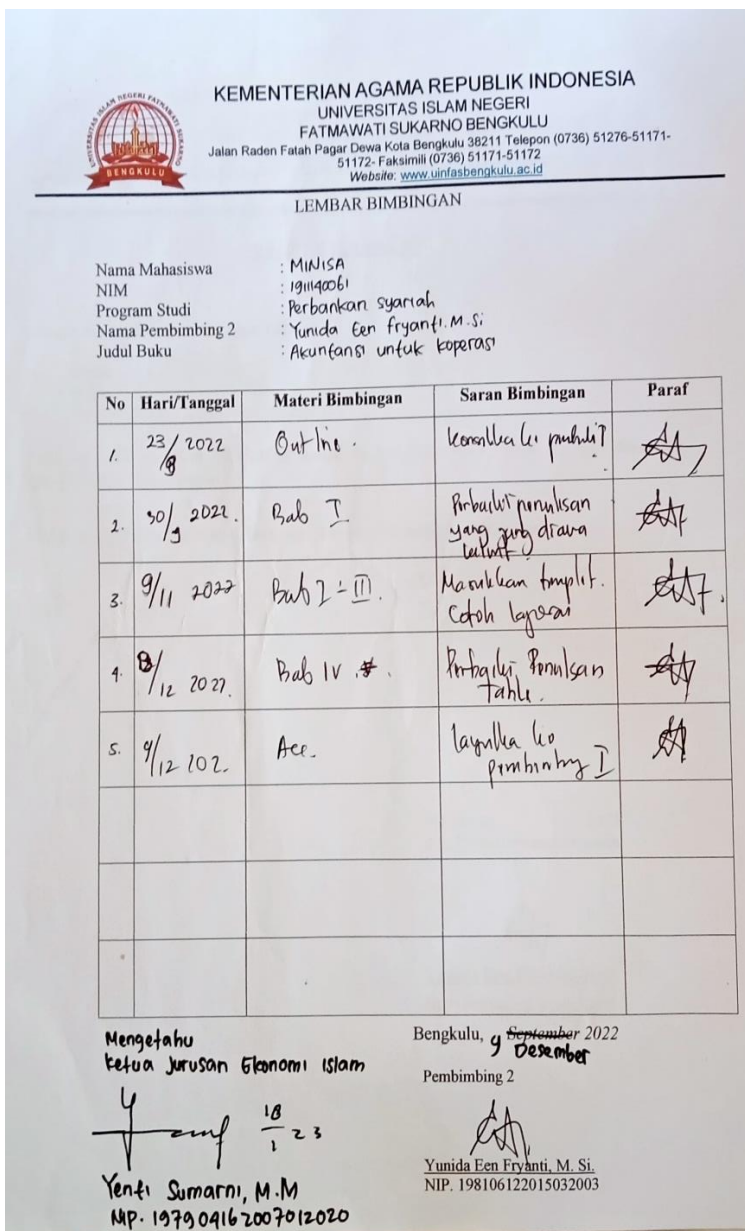 KEMENTERIAN AGAMA REPUBLIK INDONESIA
UNIVERSITAS ISLAM NEGERI
FATMAWATI SUKARNO BENGKULU
Jalan Raden Fatah Pagar Dewa Kota Bengkulu 38211 Telepon (0736) 51276-51171-
51172- Faksimili (0736) 51171-51172
Website: www.uinfasbengkulu.ac.id
UNIVERSITAS ISLAM NEGERI FATMAWATI SUKARNO
BENGKULU
LEMBAR BIMBINGAN
Nama Mahasiswa : MINISA
NIM : 1911140061
Program Studi : Perbankan syariah
Nama Pembimbing 2 : Yunida Een Fryanti. M. Si
Judul Buku : Akuntansi untuk koperasi
No Hari/Tanggal Materi Bimbingan Saran Bimbingan Paraf
1. 23/ 2022 Outline.
2. 30/9 2022. Bab I Perbaiki penulisan
yang
3. 9/11 2022 Bab I - III. Masukkan
laporan
4. 8/12 2022. Bab IV. Perbaiki Penulisan
table.
5. 9/12 202. Acc.
pembimbing I
Mengetahu
ketua Jurusan Ekonomi Islam
18/1 23
Yenti Sumarni, M.M
NIP. 197904162007012020
Bengkulu, 9 September 2022
Desember
Pembimbing 2
Yunida Een Fryanti, M. Si.
NIP. 198106122015032003